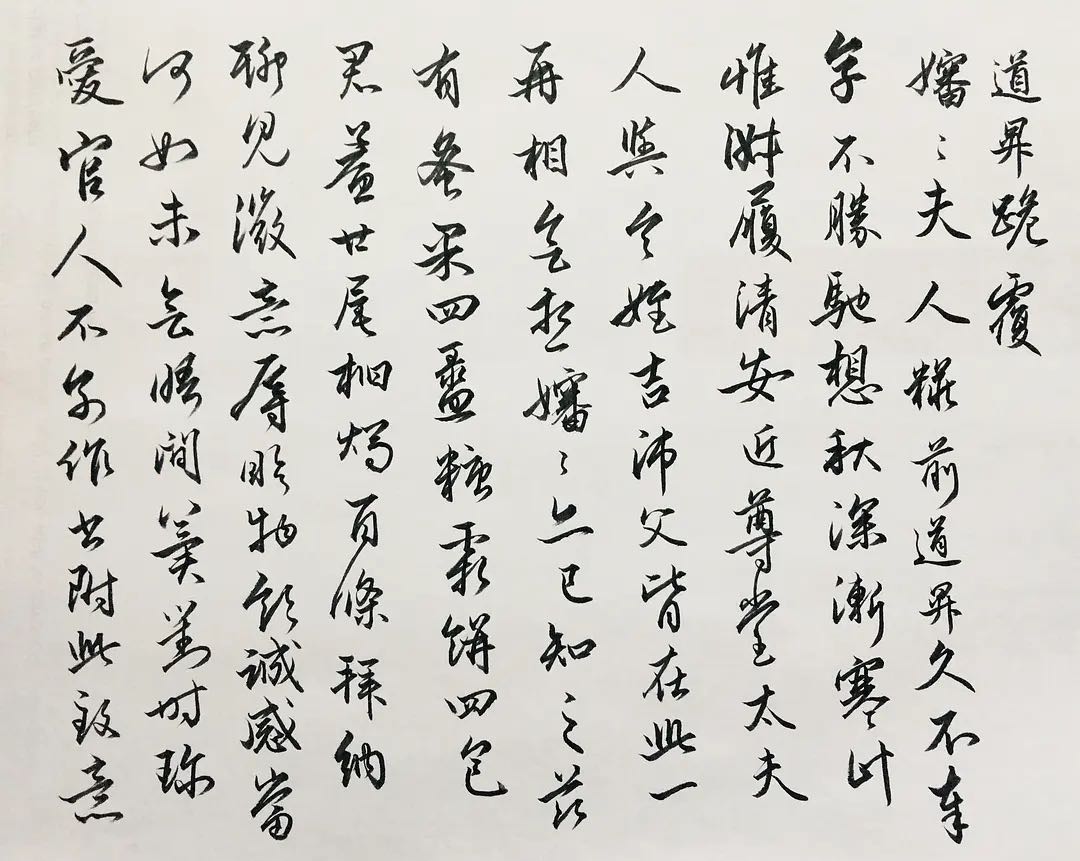 道昇跪覆
嬸〻夫人糚前道昇久不奉
字不勝馳想秋深漸寒計
惟淋履清安近尊堂太夫
人與令姪吉沛父皆在此一
再相會想嬸〻亦已知之茲
有蜜果四盝糖霜餅四包
君鯗廿尾桕燭百條拜納
聊見微意辱眎物領誠感當
何如未會晤間冀對時珍
愛官人不別作書附此致意